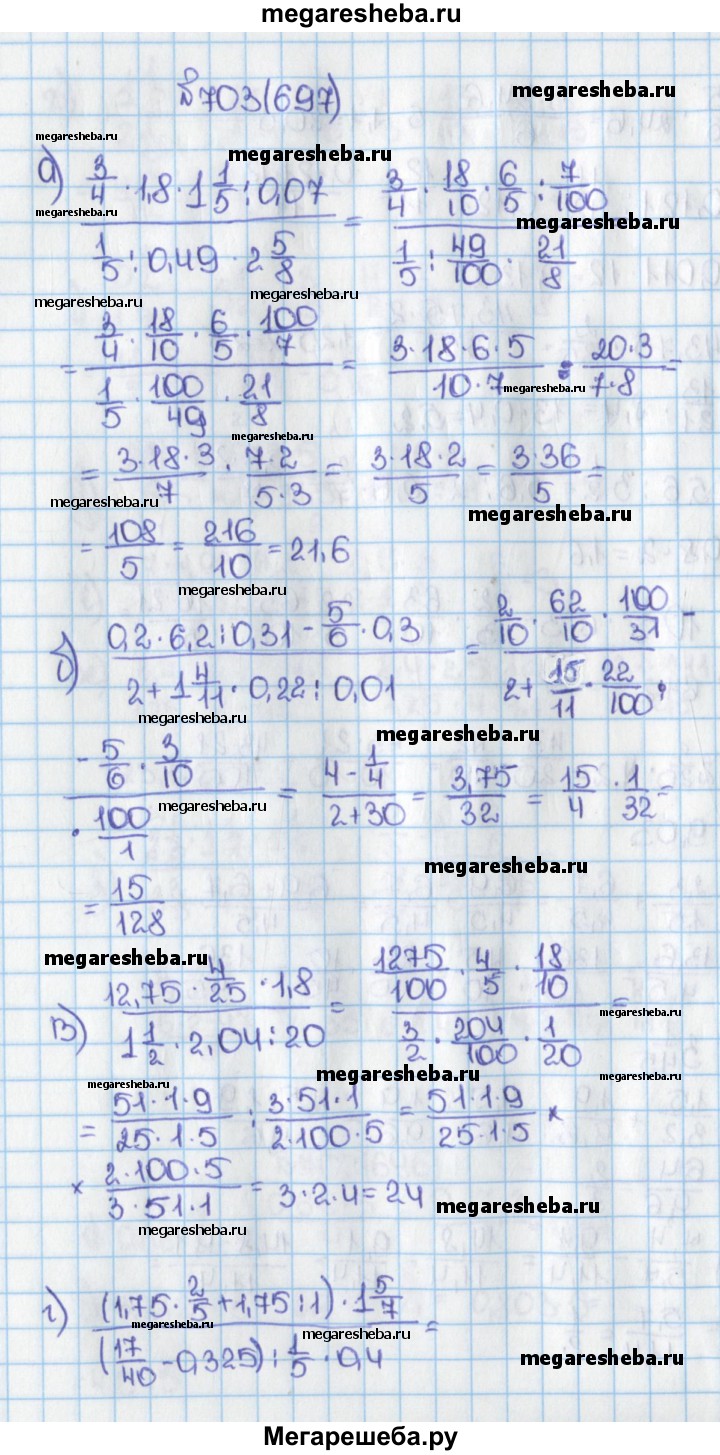 megaresheba.ru
№703(697)
megaresheba.ru
megaresheba.ru
megaresheba.ru
а) (3/4 · 1,8 · 1 1/5 : 0,07) / (1/5 : 0,49 · 2 5/8) = (3/4 · 18/10 · 6/5 : 7/100) / (1/5 : 49/100 · 21/8)
megaresheba.ru
megaresheba.ru
megaresheba.ru
megaresheba.ru
= (3/4 · 18/10 · 6/5 · 100/7) / (1/5 · 100/49 · 21/8) = (3·18·6·5)/(10·7) : (20·3)/(7·8) =
megaresheba.ru
megaresheba.ru
= (3·18·3)/7 · (7·2)/(5·3) = (3·18·2)/5 = (3·36)/5 =
megaresheba.ru
megaresheba.ru
= 108/5 = 216/10 = 21,6
megaresheba.ru
б) (0,2 · 6,2 : 0,31 - 5/6 · 0,3) / (2 + 1 4/11 · 0,22 : 0,01) = (2/10 · 62/10 · 100/31 - / (2 + 15/11 · 22/100 ·
megaresheba.ru
megaresheba.ru
- 5/6 · 3/10) / (· 100/1) = (4 - 1/4) / (2+30) = 3,75/32 = 15/4 · 1/32 =
megaresheba.ru
megaresheba.ru
= 15/128
megaresheba.ru
в) (12,75 · 4/25 · 1,8) / (1 1/2 · 2,04 : 20) = (1275/100 · 4/5 · 18/10) / (3/2 · 204/100 · 1/20) =
megaresheba.ru
megaresheba.ru
megaresheba.ru
megaresheba.ru
= (51·1·9)/(25·1·5) : (3·51·1)/(2·100·5) = (51·1·9)/(25·1·5) ×
× (2·100·5)/(3·51·1) = 3·2·4 = 24
megaresheba.ru
megaresheba.ru
г) ((1,75 · 2/5 + 1,75 : 1) · 1 5/7) / ((17/40 - 0,325) : 1/5 · 0,4) =
megaresheba.ru
megaresheba.ru
megaresheba.ru
Мегарешеба.ру